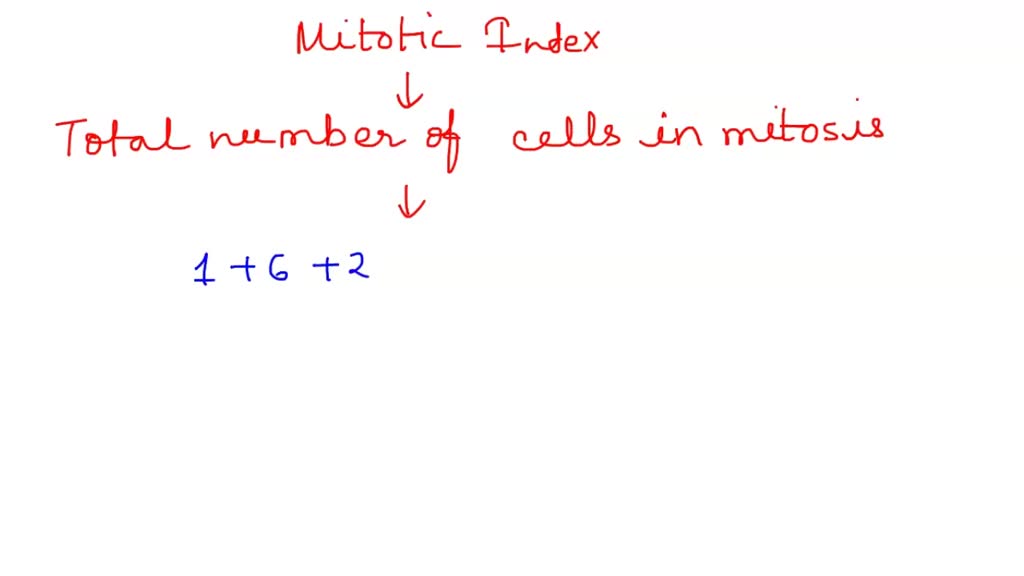 Mitotic Index
↓
Total number of cells in mitosis
↓
1 + 6 + 2